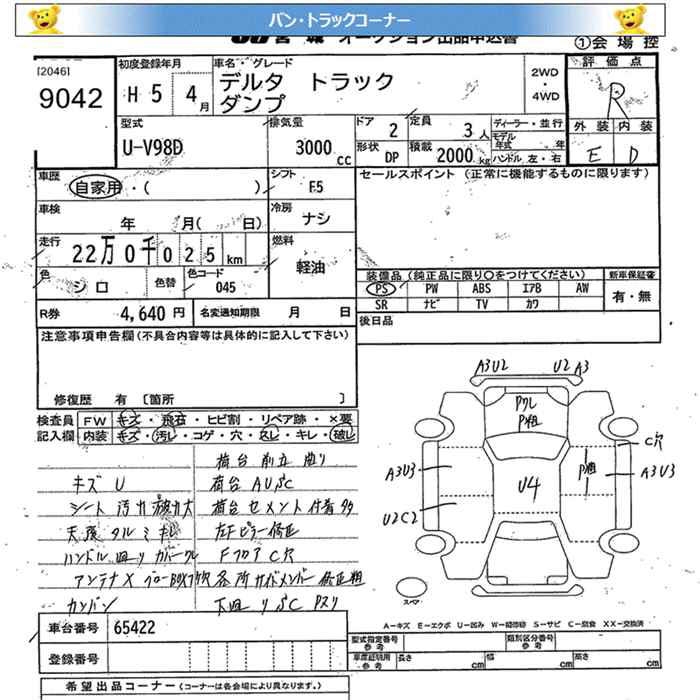 バン・トラックコーナー
オークション出品申込書
①会場控
[2046]
9042
初度登録年月
H5 4月
車名・グレード
デルタ トラック
ダンプ
2WD
・
4WD
評価点
R
外装 内装
E D
型式
U-V98D
排気量
3000 cc
ドア 2
定員 3人
形状 DP
積載 2000 kg
ディーラー・並行
モデル年式 年
ハンドル 左・右
車歴
自家用・( )
シフト
F5
セールスポイント (正常に機能するものに限ります)
車検
年 月( 日)
冷房
ナシ
走行
22万0千025km
燃料
軽油
色
シロ
色替
色コード
045
装備品 (純正品に限り○をつけてください)
新車保証書
PS PW ABS エアB AW
有・無
SR ナビ TV カワ
R券 4,640円
名変通知期限 月 日
後日品
注意事項申告欄(不具合内容等は具体的に記入して下さい)
修復歴 有 〔箇所 〕
検査員 FW キズ・飛石・ヒビ割・リペア跡・×要
記入欄 内装 キズ・汚レ・コゲ・穴・スレ・キレ・破レ
荷台 前立 曲り
キズ U 荷台 AUSC
シート 汚れ 破れ大 荷台 セメント 付着 多
天張 タルミ キレ 左Fピラー修正
ハンドル 回り カバークル FフロアC穴
アンテナX
サイドメンバー修正 粗
カンバン 下回りSC Pスリ
A3U2 U2A3
Pクレ
P粗
C穴
A3U3 P粗 A3U3
U4
U2C2
スペア
A－キズ E－エクボ U－凹み W－補修跡 S－サビ C－腐食 XX－交換済
車台番号 65422
登録番号
型式指定番号 類別区分番号
車庫証明用参考 長さ cm 幅 cm 高さ cm
希望出品コーナー(コーナーは各会場により異なります。)